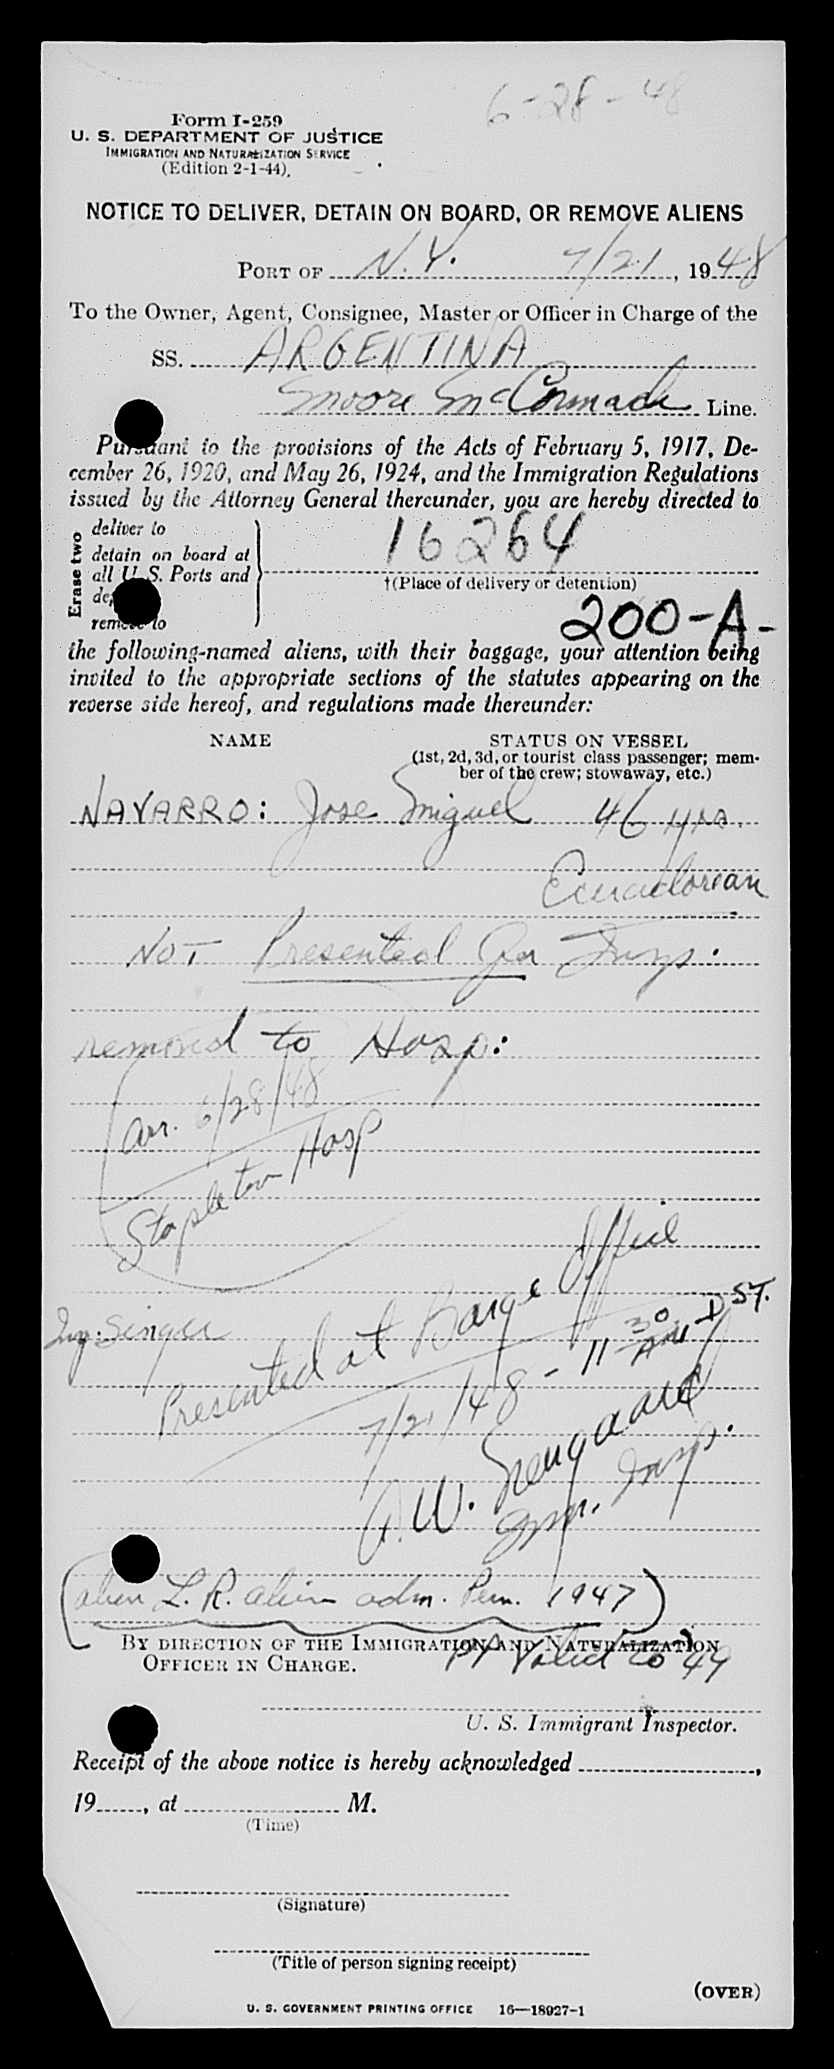 6-28-48
Form I-259
U. S. DEPARTMENT OF JUSTICE
IMMIGRATION AND NATURALIZATION SERVICE
(Edition 2-1-44)
NOTICE TO DELIVER, DETAIN ON BOARD, OR REMOVE ALIENS
PORT OF N.Y. 7/21, 1948
To the Owner, Agent, Consignee, Master or Officer in Charge of the
SS. ARGENTINA
Moore McCormack Line.
Pursuant to the provisions of the Acts of February 5, 1917, De-
cember 26, 1920, and May 26, 1924, and the Immigration Regulations
issued by the Attorney General thereunder, you are hereby directed to
Erase two
deliver to
detain on board at
all U. S. Ports and
de
remove to
16264
†(Place of delivery or detention)
200-A-
the following-named aliens, with their baggage, your attention being
invited to the appropriate sections of the statutes appearing on the
reverse side hereof, and regulations made thereunder:
NAME STATUS ON VESSEL
(1st, 2d, 3d, or tourist class passenger; mem-
ber of the crew; stowaway, etc.)
NAVARRO: Jose Miguel 46 yrs.
Ecuadorean
NOT Presented for Insp.
removed to Hosp:
arr. 6/28/48
Stapleton Hosp
Presented at Barge Office
Insp. Singer
7/21/48 - 11 30 AM DST.
Imm. Insp.
(alien L. R. alien adm. Perm. 1947)
BY DIRECTION OF THE IMMIGRATION AND NATURALIZATION
OFFICER IN CHARGE.
PP Valid to '49
U. S. Immigrant Inspector.
Receipt of the above notice is hereby acknowledged ,
19 , at M.
(Time)
(Signature)
(Title of person signing receipt)
(OVER)
U. S. GOVERNMENT PRINTING OFFICE 16—18927-1